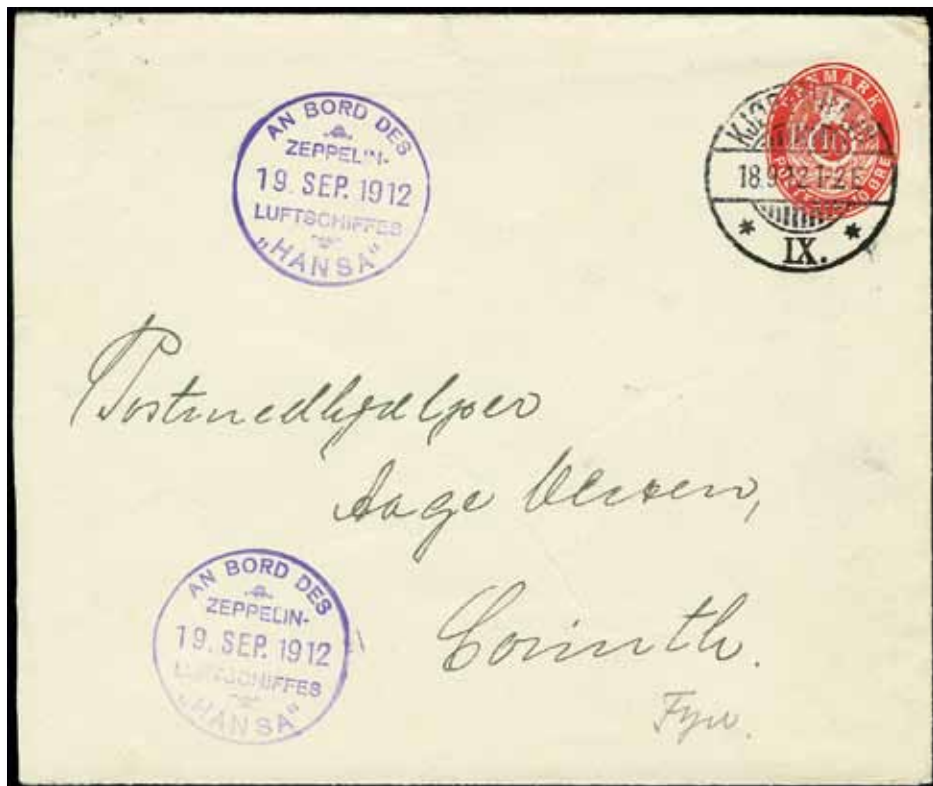 AN BORD DES
ZEPPELIN-
19. SEP. 1912
LUFTSCHIFFES
„HANSA“
DANMARK
18.9.12.1-2E
* IX. *
Postmedhjælper
Aage
Corinth.
Fyn.
AN BORD DES
ZEPPELIN-
19. SEP. 1912
LUFTSCHIFFES
„HANSA“